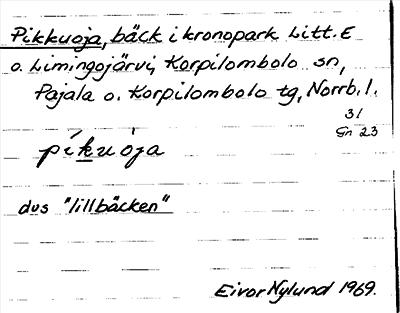 Pikkuoja, bäck i kronopark Litt. E
o. Limingojärvi, Korpilombolo sn,
Pajala o. Korpilombolo tg, Norrb. l.
31
Gn 23
píkuòja
dvs "lillbäcken"
Eivor Nylund 1969.